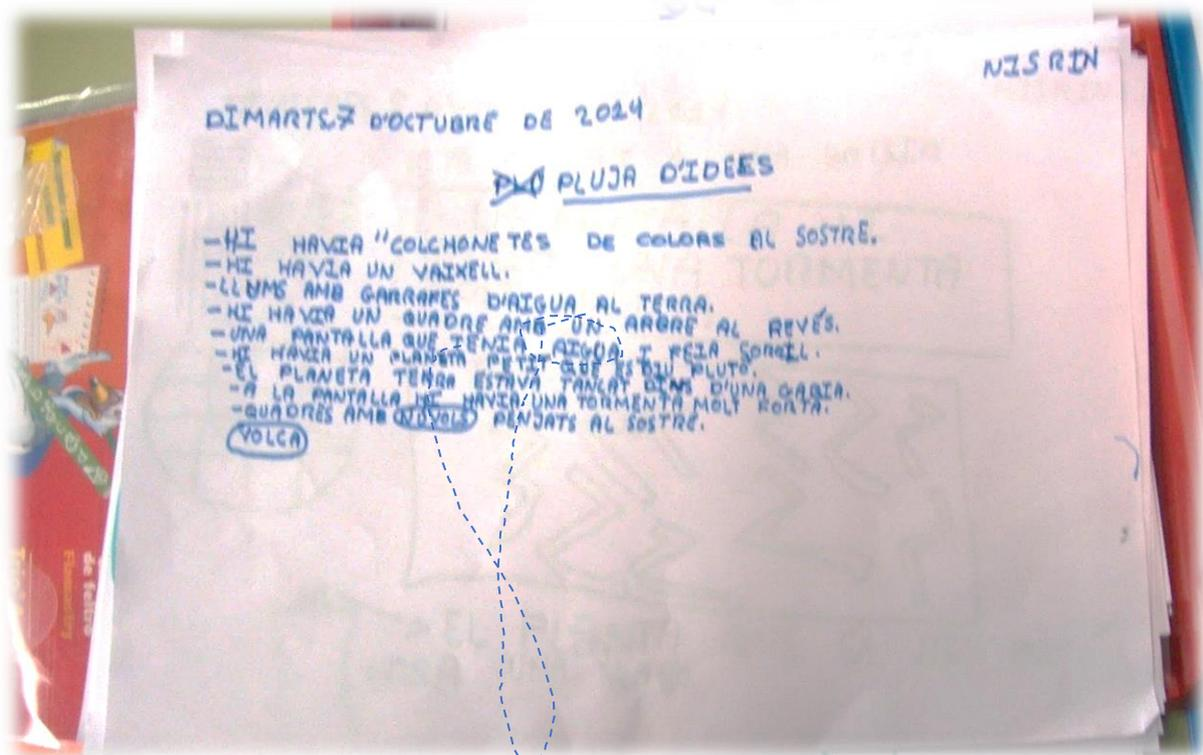 NISRIN
DIMARTS,7 D'OCTUBRE DE 2014
PLUJA D'IDEES
-HI HAVIA "COLCHONETES DE COLORS AL SOSTRE.
-HI HAVIA UN VAIXELL.
-LLUMS AMB GARRAFES D'AIGUA AL TERRA.
-HI HAVIA UN QUADRE AMB UN ARBRE AL REVÉS.
-UNA PANTALLA QUE TENIA AIGUA I FEIA SOROLL.
-HI HAVIA UN PLANETA PETIT QUE ES DIU PLUTÓ.
-EL PLANETA TERRA ESTAVA TANCAT DINS D'UNA GABIA.
-A LA PANTALLA HI HAVIA UNA TORMENTA MOLT FORTA.
-QUADRES AMB NÚVOLS PENJATS AL SOSTRE.
VOLCA
de feltro